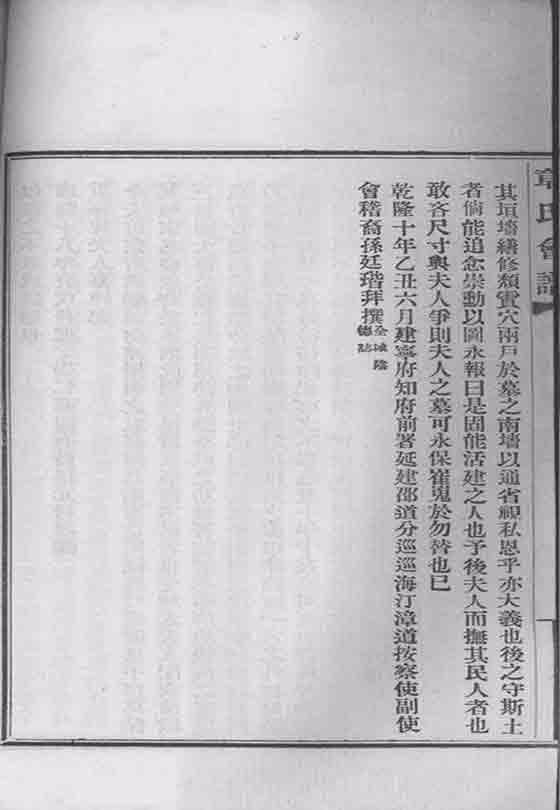 章氏會譜
其垣墻繕修頹實穴兩戶於墓之南墻以通省視私恩乎亦大義也後之守斯土
者倘能追念崇勳以圖永報曰是固能活建之人也予後夫人而撫其民人者也
敢吝尺寸與夫人爭則夫人之墓可永保崔嵬於勿替也已
乾隆十年乙丑六月建寧府知府前署延建邵道分巡巡海汀漳道按察使副使
會稽裔孫廷瑎拜撰